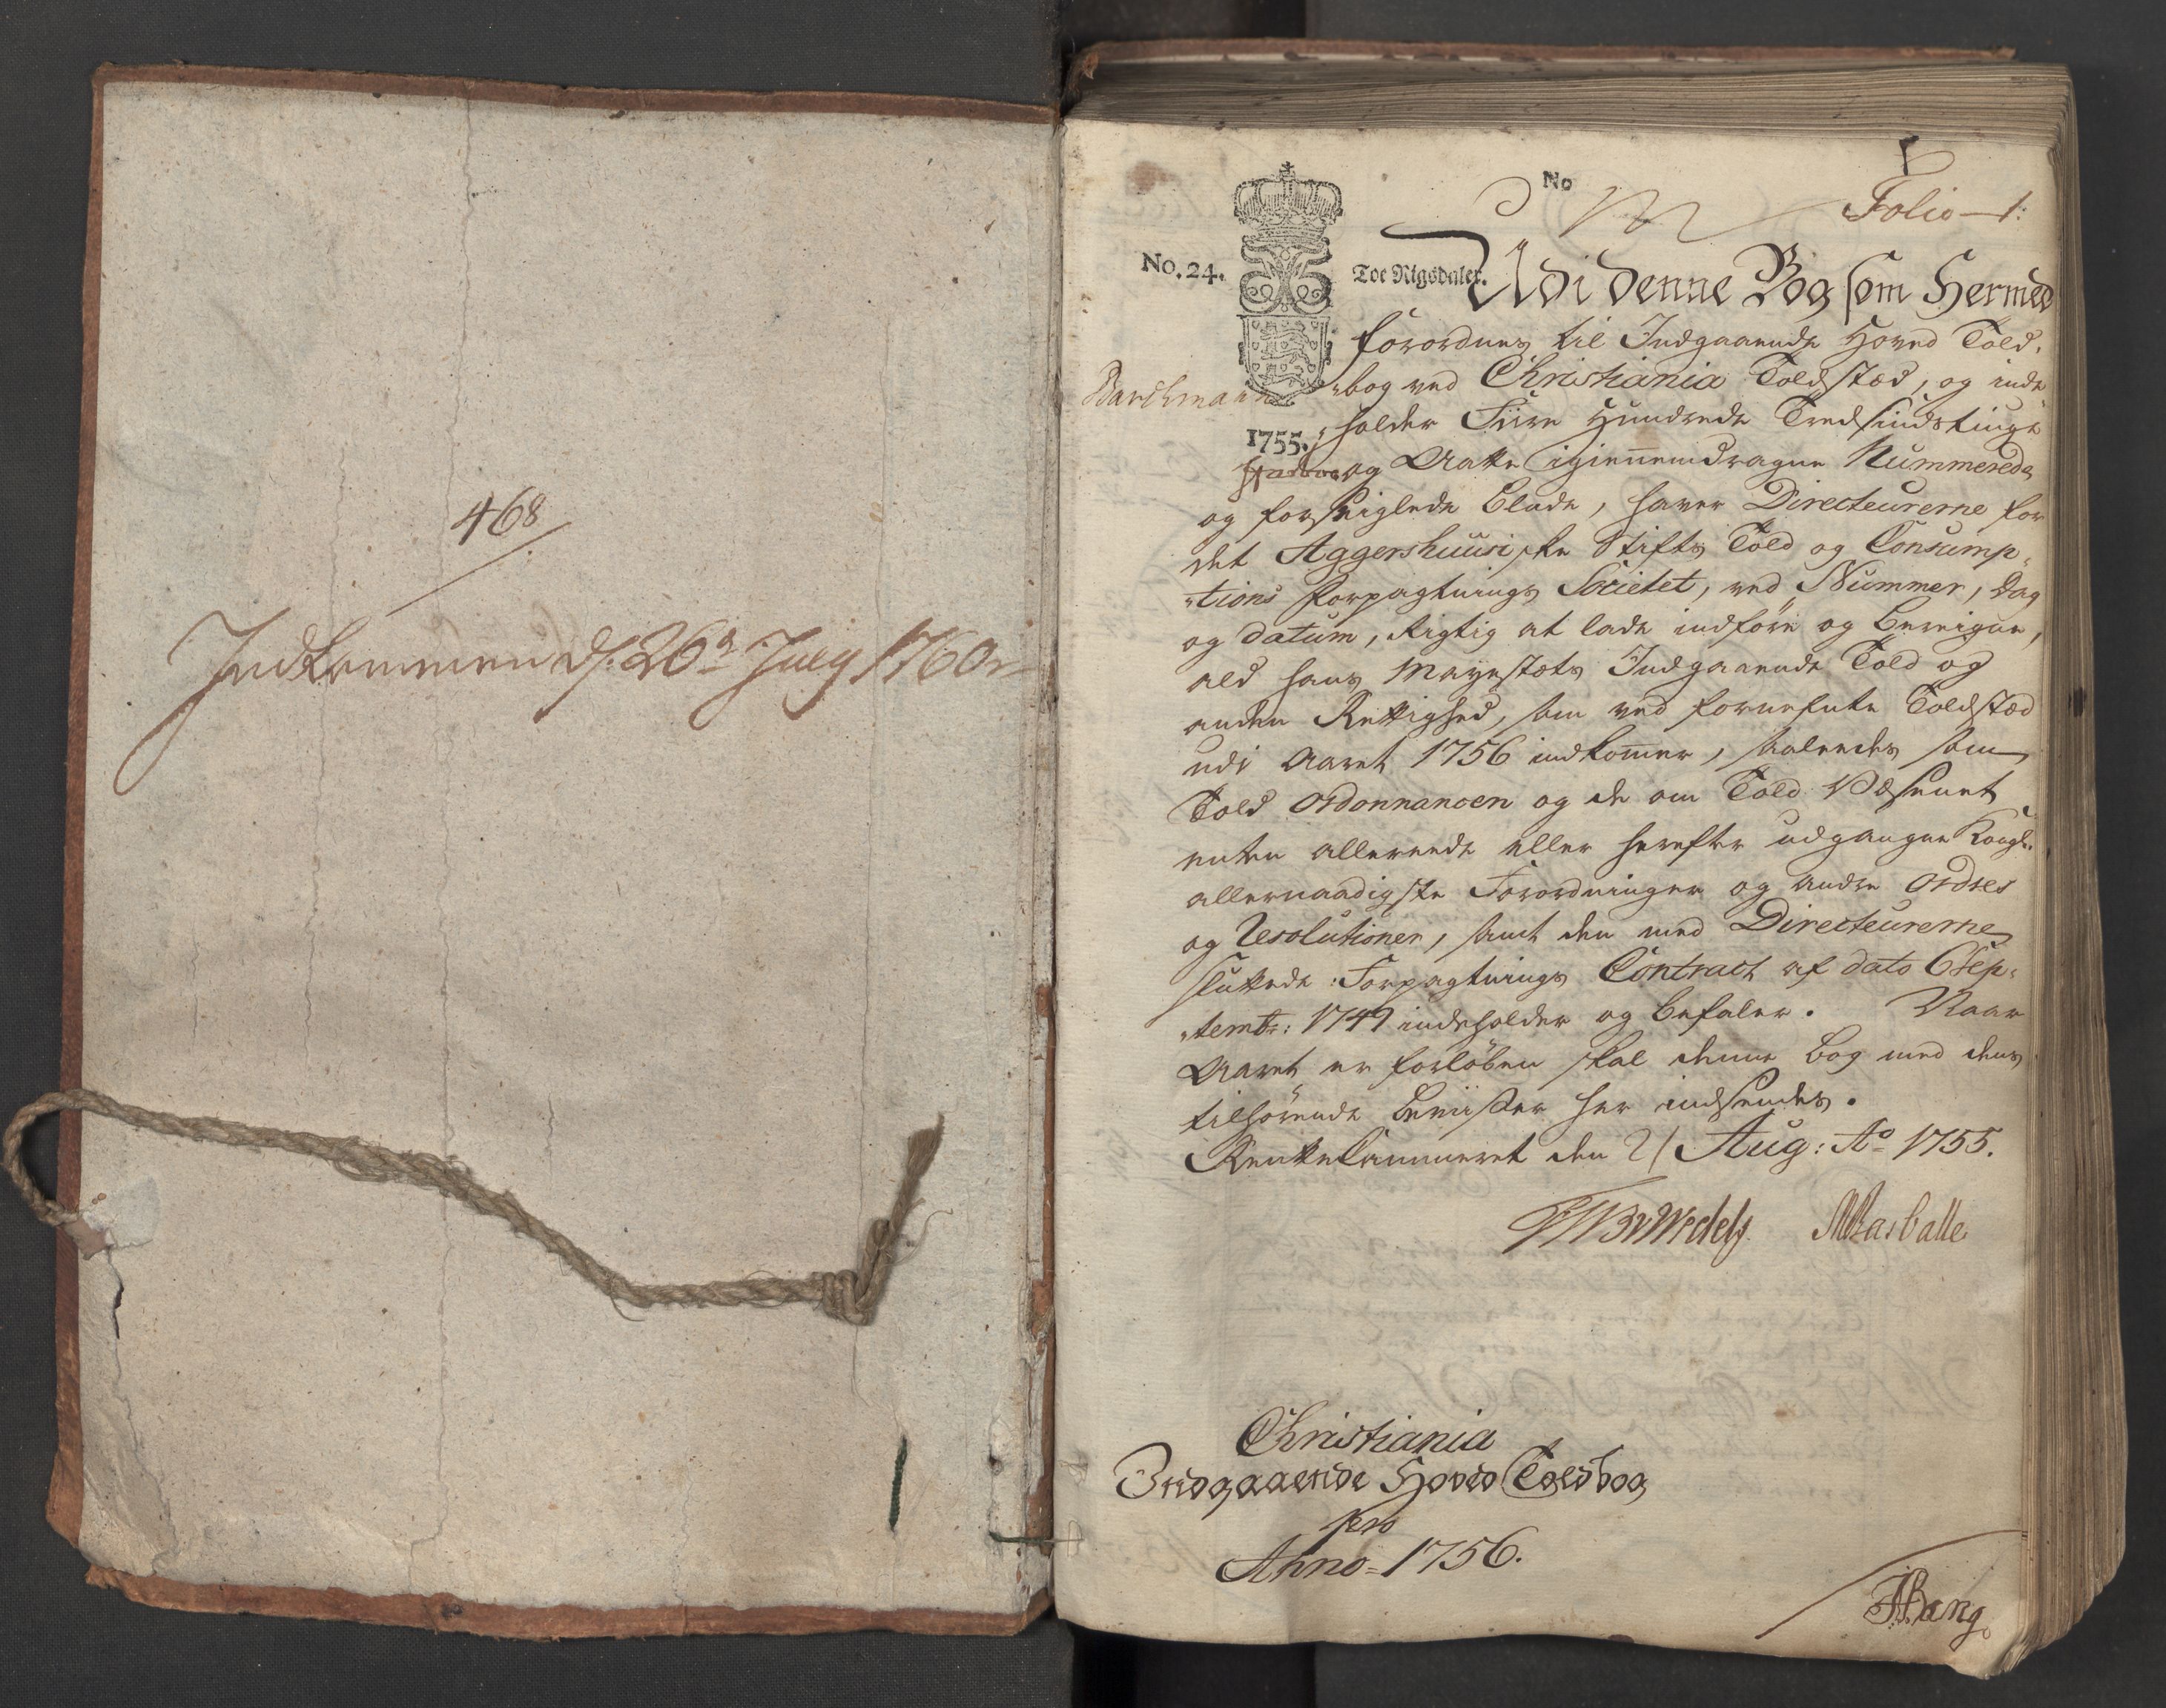 468
Indkommen d. 26de July 1760
No
Folio 1:
No. 24.
Toe Rigsdaler.
Udi denne Bog som Hermed
forordnes til Indgaaende Hoved Told,,
,,bog ved Christiania Toldstæd, og inde
Barchmann
1755.
,,holder Fiire Hundrede Tredsindstiuge
og Aatte igiennemdragne Nummerede
og forseiglede Blade, haver Directeurerne for
det Aggershuusiske Stifts Told og Consump,,
,,tions Forpagtnings Societet, ved Nummer, Dag
og Datum, Rigtig at lade indføre og Bereigne,
ald Hans Mayestæts Indgaaende Told og
anden Rettighed, som ved fornefnte Toldstæd
udi Aaret 1756 indkommer, saaledes som
Told Ordonnancen og de om Told Væsenet
enten allereede eller herefter udgangne Kongl.
allernaadigste Forordninger og andre Ordres
og Resolutioner, samt den med Directeurerne
sluttede Forpagtnings Contract af dato 6 Sep,,
,,tembr: 1749 indeholder og befaler. Naar
Aaret er forløben skal denne Bog med dens
tilhørende Beviiser her indsendes.
RentteCammeret den 21 Aug: Ao 1755.
Christiania
Indgaaende Hoved Toldbog
pro
Anno 1756.
Bang